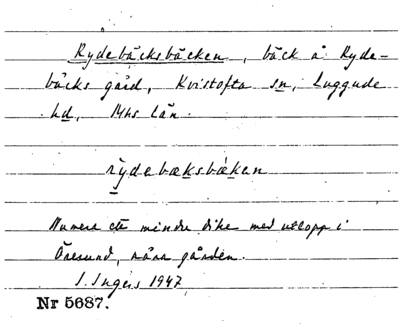 Rydebäcksbäcken, bäck å Ryde-
bäcks gård, Kvistofta sn, Luggude
hd, Mhs län.
rydebæksbæken
Numera ett mindre dike med utlopp i
Öresund, nära gården.
I. Ingers 1947
Nr 5687.